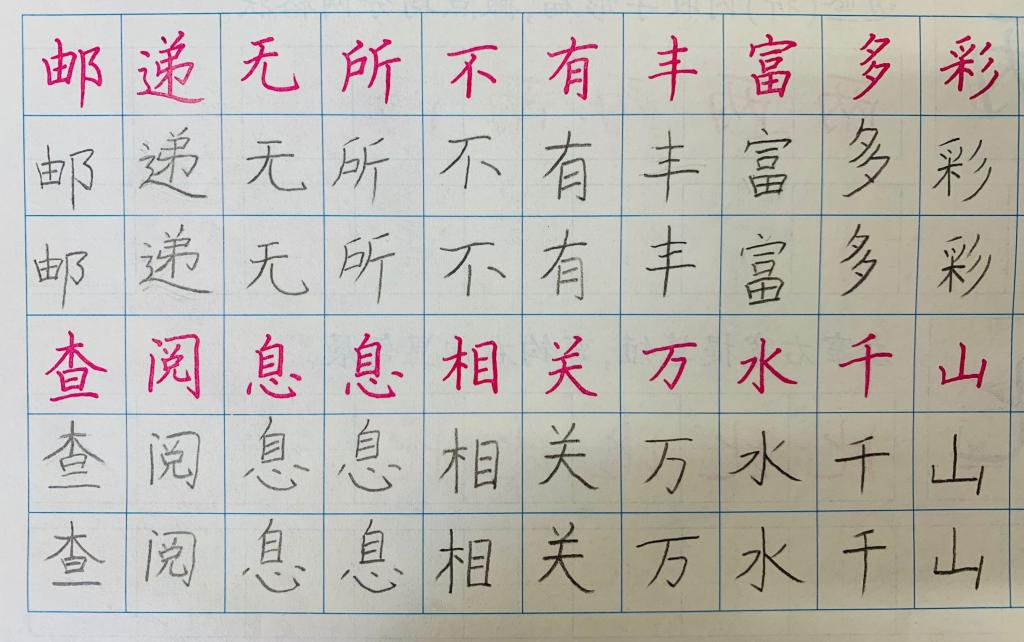 邮递无所不有丰富多彩
邮递无所不有丰富多彩
邮递无所不有丰富多彩
查阅息息相关万水千山
查阅息息相关万水千山
查阅息息相关万水千山